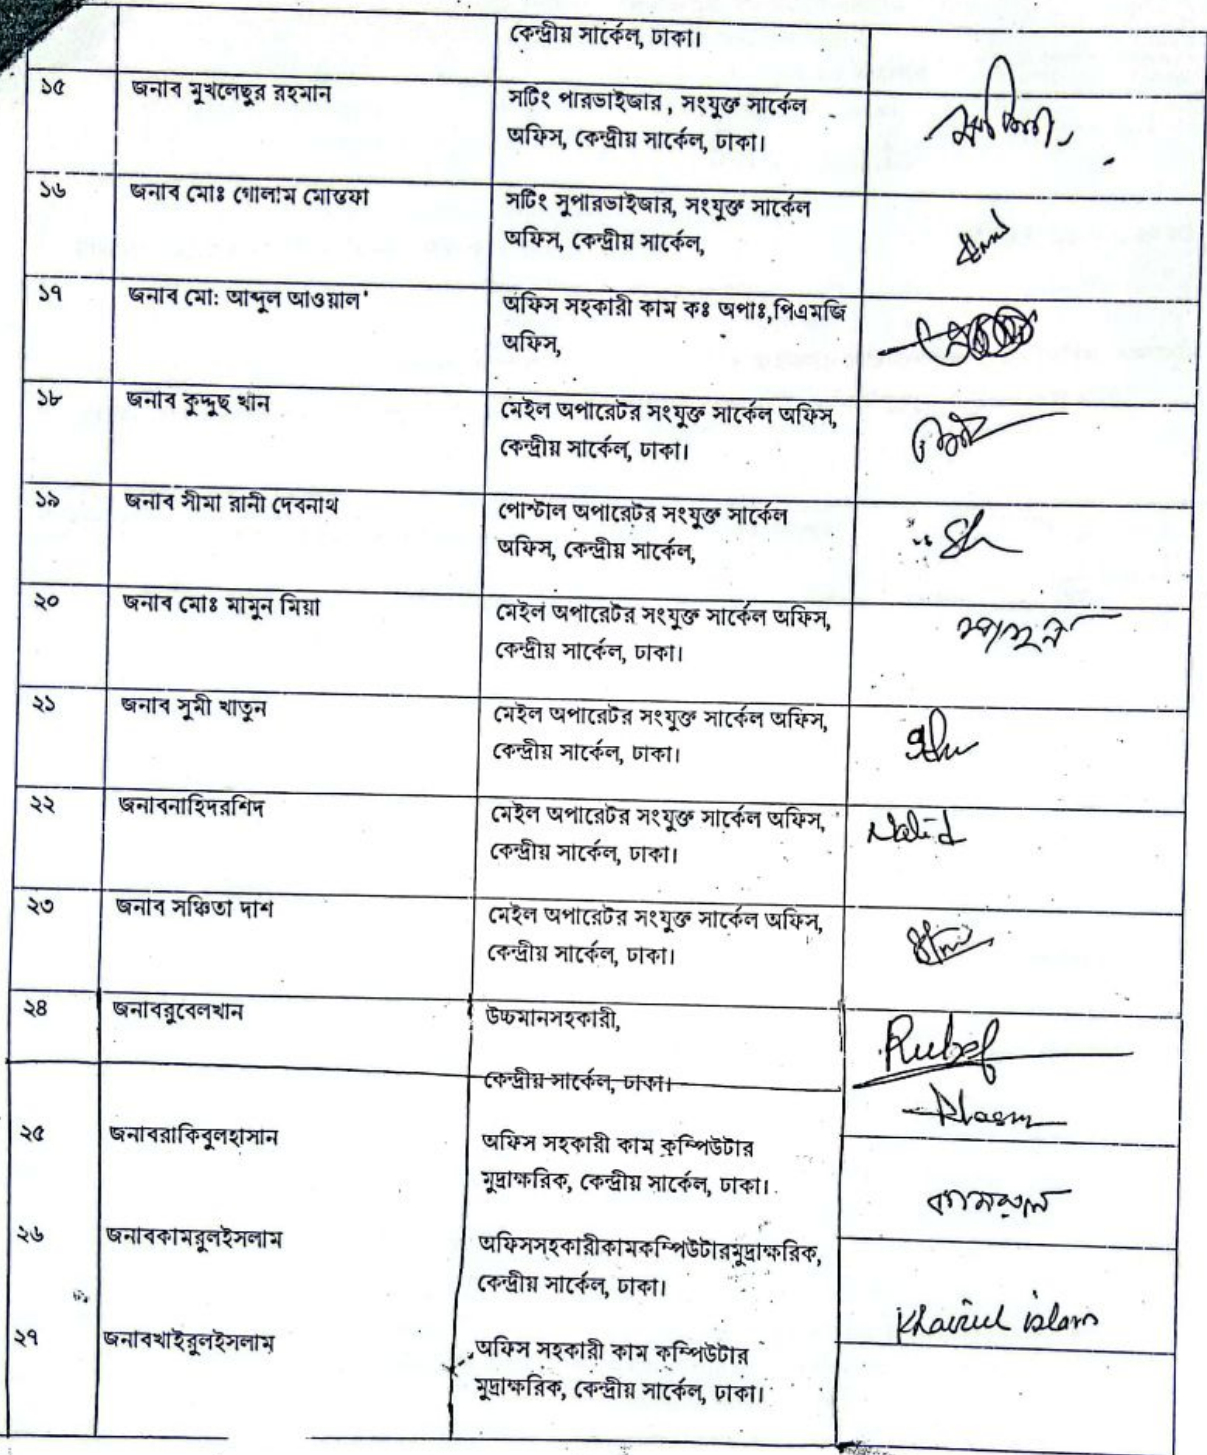 কেন্দ্রীয় সার্কেল, ঢাকা।
১৫ জনাব মুখলেছুর রহমান সটিং পারভাইজার , সংযুক্ত সার্কেল
অফিস, কেন্দ্রীয় সার্কেল, ঢাকা।
১৬ জনাব মোঃ গোলাম মোস্তফা সটিং সুপারভাইজার, সংযুক্ত সার্কেল
অফিস, কেন্দ্রীয় সার্কেল,
১৭ জনাব মো: আব্দুল আওয়াল' অফিস সহকারী কাম কঃ অপাঃ,পিএমজি
অফিস,
১৮ জনাব কুদ্দুছ খান মেইল অপারেটর সংযুক্ত সার্কেল অফিস,
কেন্দ্রীয় সার্কেল, ঢাকা।
১৯ জনাব সীমা রানী দেবনাথ পোস্টাল অপারেটর সংযুক্ত সার্কেল
অফিস, কেন্দ্রীয় সার্কেল,
২০ জনাব মোঃ মামুন মিয়া মেইল অপারেটর সংযুক্ত সার্কেল অফিস,
কেন্দ্রীয় সার্কেল, ঢাকা।
২১ জনাব সুমী খাতুন মেইল অপারেটর সংযুক্ত সার্কেল অফিস,
কেন্দ্রীয় সার্কেল, ঢাকা।
২২ জনাবনাহিদরশিদ মেইল অপারেটর সংযুক্ত সার্কেল অফিস, Nahid
কেন্দ্রীয় সার্কেল, ঢাকা।
২৩ জনাব সঞ্চিতা দাশ মেইল অপারেটর সংযুক্ত সার্কেল অফিস,
কেন্দ্রীয় সার্কেল, ঢাকা।
২৪ জনাবরুবেলখান উচ্চমানসহকারী, Rubel
কেন্দ্রীয় সার্কেল, ঢাকা।
২৫ জনাবরাকিবুলহাসান অফিস সহকারী কাম কম্পিউটার
মুদ্রাক্ষরিক, কেন্দ্রীয় সার্কেল, ঢাকা। কামরুল
২৬ জনাবকামরুলইসলাম অফিসসহকারীকামকম্পিউটারমুদ্রাক্ষরিক,
কেন্দ্রীয় সার্কেল, ঢাকা। Khairul islam
২৭ জনাবখাইরুলইসলাম অফিস সহকারী কাম কম্পিউটার
মুদ্রাক্ষরিক, কেন্দ্রীয় সার্কেল, ঢাকা।